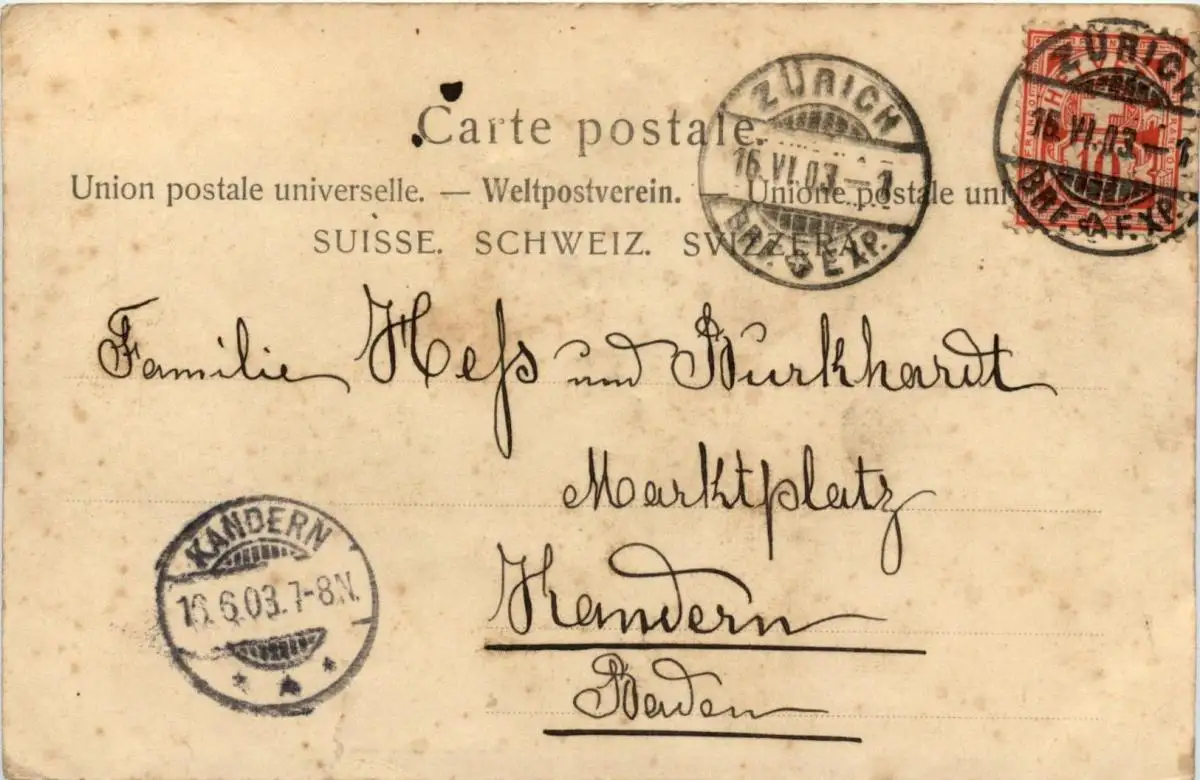 Carte postale.
Union postale universelle. — Weltpostverein. — Unione postale uni
SUISSE. SCHWEIZ. SVIZZERA.
ZÜRICH
16.VI.03.–1
BRF. EXP.
ZÜRICH
16.VI.03.–1
BRF. EXP.
10
Familie Heſs und Burkhardt
Marktplatz
Kandern
Baden
KANDERN
16.6.03.7-8.N.